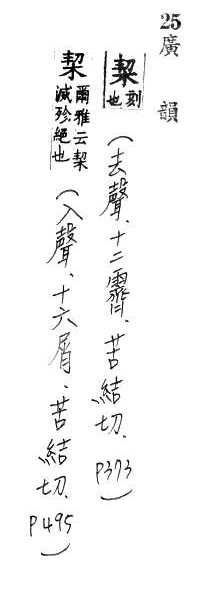 25廣韻
栔刻也（去聲、十二霽、苦結切、P373）
栔爾雅云栔滅殄絕也（入聲、十六屑、苦結切、P495）